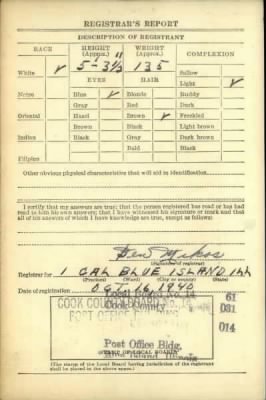 REGISTRAR'S REPORT
DESCRIPTION OF REGISTRANT
RACE
HEIGHT (Approx.)
WEIGHT (Approx.)
COMPLEXION
5-3½ "
135
White ✓
Sallow
EYES
HAIR
Light ✓
Negro
Blue ✓
Blonde
Ruddy
Gray
Red
Dark
Oriental
Hazel
Brown ✓
Freckled
Brown
Black
Light brown
Indian
Black
Gray
Dark brown
Bald
Black
Filipino
Other obvious physical characteristics that will aid in identification
I certify that my answers are true; that the person registered has read or has had
read to him his own answers; that I have witnessed his signature or mark and that
all of his answers of which I have knowledge are true, except as follows:
(Signature of registrar)
Registrar for 1 CAL BLUE ISLAND ILL
(Precinct) (Ward) (City or County) (State)
Date of registration OCT. 16, 1940
Local Board No. 14 61
COOK COUNTY BOARD No. 14
Cook County 031
POST OFFICE
014
Post Office Bldg.
(STAMP OF LOCAL BOARD)
Blue Island, Illinois
(The stamp of the Local Board having jurisdiction of the registrant
shall be placed in the above space.)